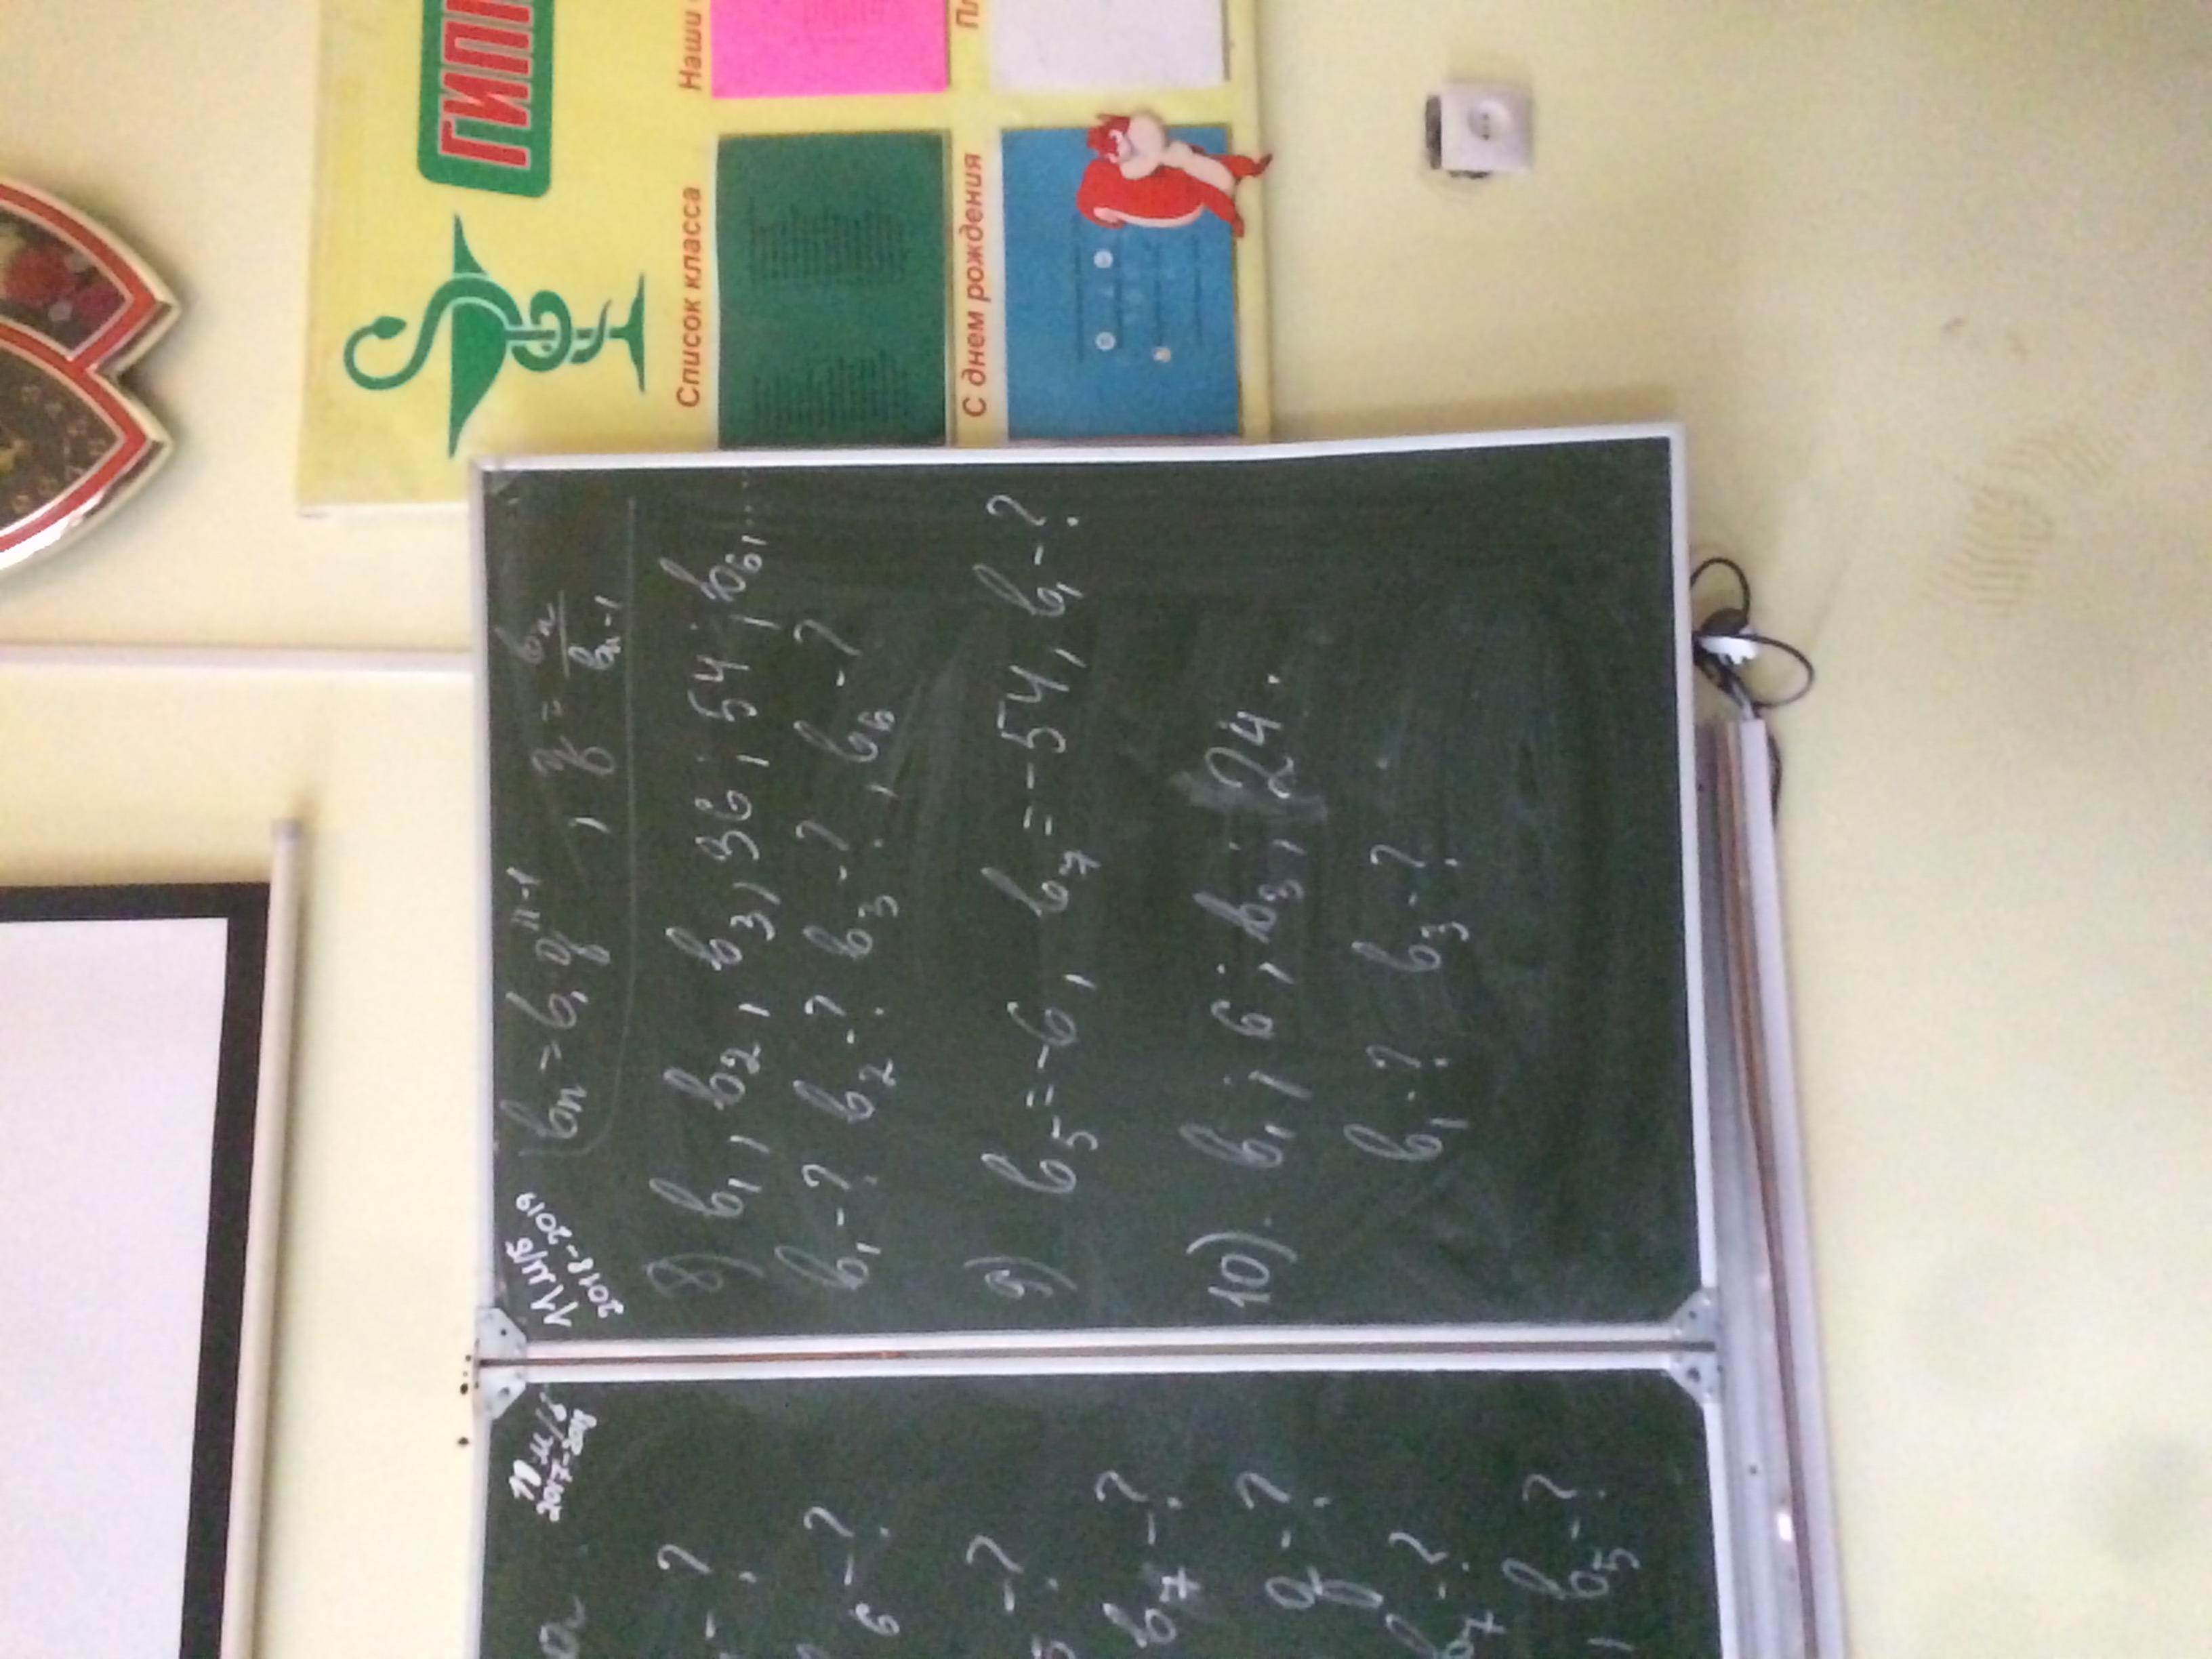 ГИПП
Наши
Список класса
С днем рождения
11 м/б
2018-2019
bn = b1 q^n-1, q = bn/bn-1
8) b1, b2, b3, 36; 54; b6, ...
b1 -? b2 -? b3 -?, b6 -?
9) b5 = -6, b7 = -54, b1 -?
10). b1; 6; b3; 24.
b1 -? b3 -?
2017-2018
-?
6 -?
-?
b7 -?
q -?
b7 -?
b5 -?